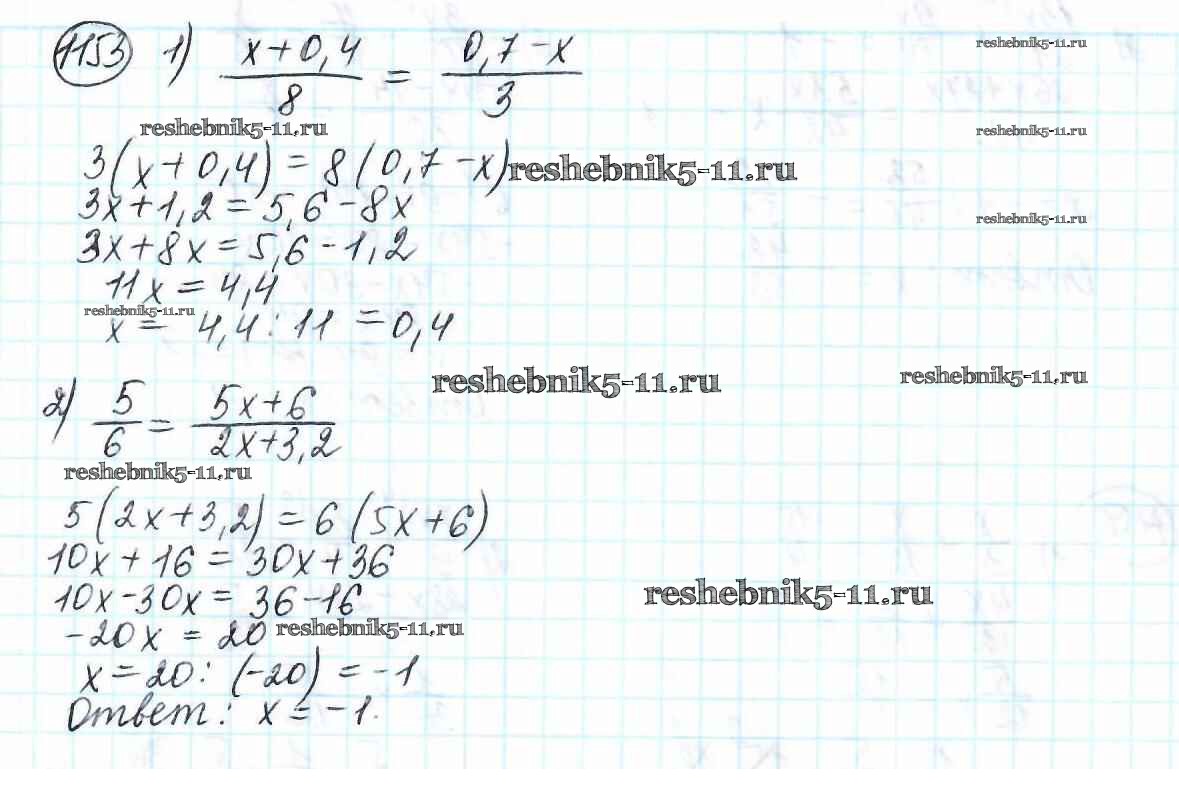 1153 1) x+0,4 / 8 = 0,7-x / 3
reshebnik5-11.ru
reshebnik5-11.ru
reshebnik5-11.ru
3(x+0,4) = 8(0,7-x) reshebnik5-11.ru
3x+1,2=5,6-8x
reshebnik5-11.ru
3x+8x=5,6-1,2
11x=4,4
reshebnik5-11.ru
x= 4,4:11 =0,4
reshebnik5-11.ru
reshebnik5-11.ru
2) 5/6 = 5x+6 / 2x+3,2
reshebnik5-11.ru
5(2x+3,2)=6(5x+6)
10x+16=30x+36
10x-30x=36-16
reshebnik5-11.ru
-20x=20
reshebnik5-11.ru
x=20:(-20)=-1
Ответ: x=-1.